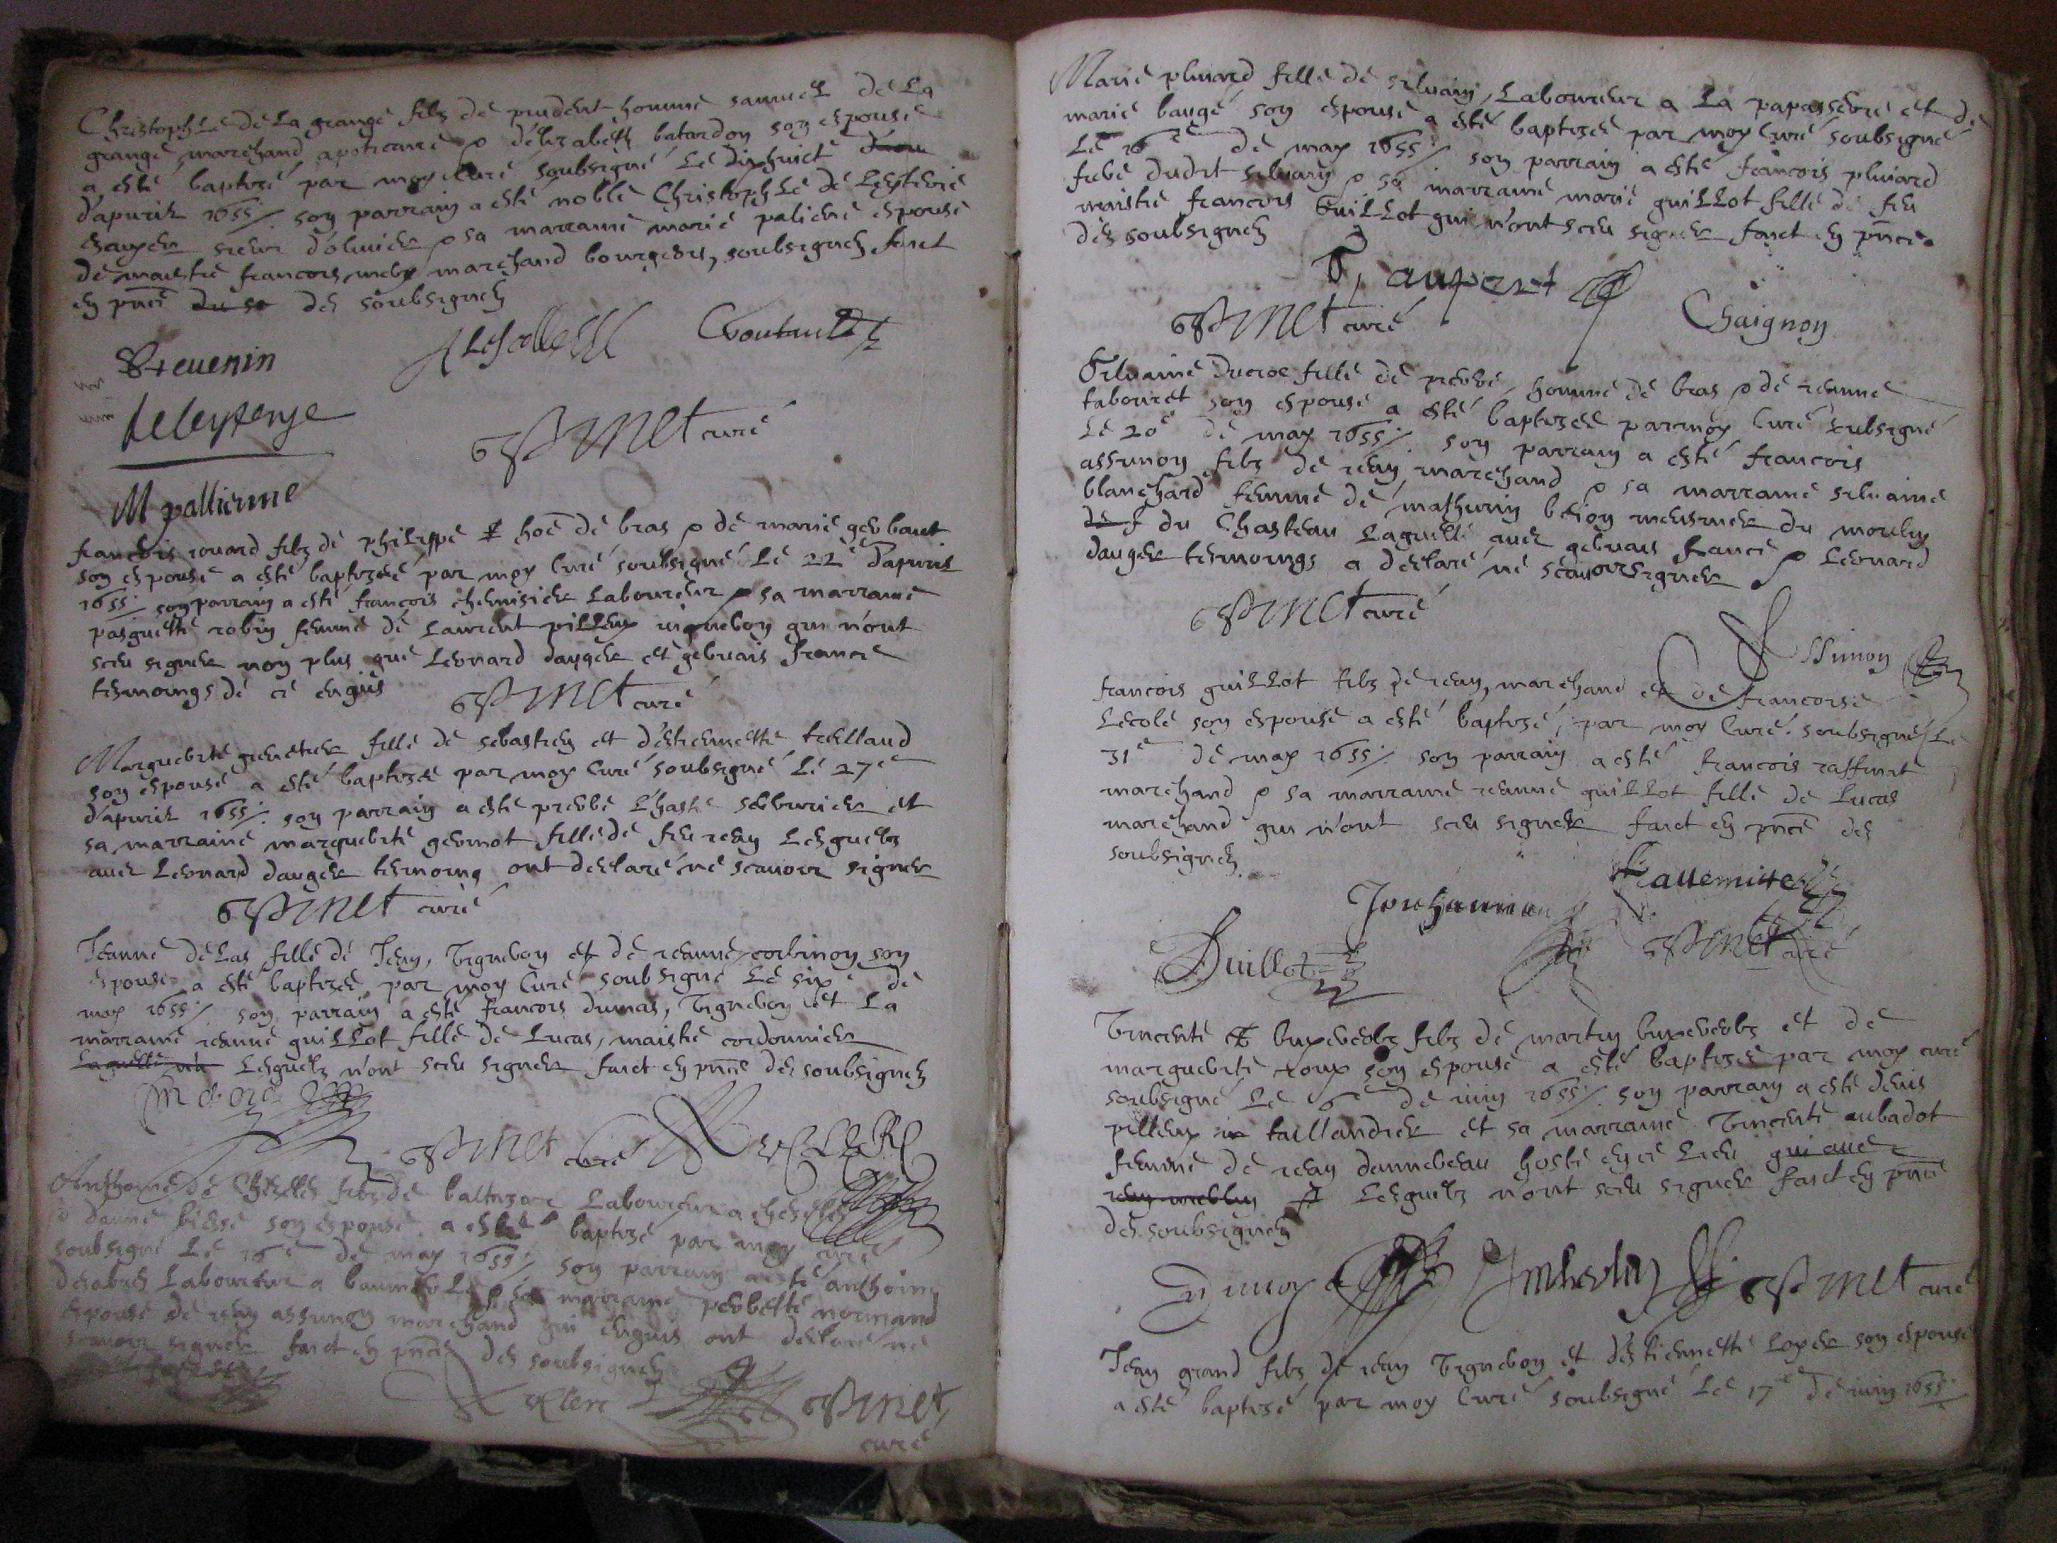 Christophle de la grange filz de prudent homme samuel de la
grange marchand apoticaire & délizabeth batardon son espouse
a esté baptizé par moy curé soubsigné le dixhuicte
d'apuril 1655 /. son parrain a esté noble Christophle de
escuyer sieur & sa marraine marie paliene espouse
de maistre francois marchand bourgeois, soubsignez faict
en pnce du so des soubsignez
Theuenin
Croutault
curé
M pallienne
francois rouard filz de philippe hoe de bras & de marie
son espouse a esté baptizée par moy curé soubsigné le 22e d'apuril
1655 /. son parrain a esté francois laboureur & sa marraine
pasquette robin femme de laurent pilleux vigneron qui n'ont
sceu signer non plus que leonard dauger et geruais france
tesmoings de ce enquis
curé
Marguerite fille de sebastien et d'estiennette
son espouse a esté baptizée par moy curé soubsigné le 27e
d'apuril 1655 /. son parrain a esté pierre et
sa marraine marguerite fille de feu iean lesquelz
auec leonard dauger tesmoing ont declaré ne scauoir signer
curé
Jeanne delas fille de Jean, vigneron et de ieanne corbinon son
espouse a esté baptizée par moy curé soubsigné le sixe de
may 1655 /. son parrain a esté francois dumas, vigneron et la
marraine ieanne guillot fille de lucas, maistre cordonnier
laquelle n'a lesquelz n'ont sceu signer faict en pnce des soubsignez
curé
Anthoine de filz de baltazar laboureur a
& danne son espouse a esté baptizé par moy curé
soubsigné le 16e de may 1655 /. son parrain a esté anthoine
laboureur a & sa marraine perrette normand
espouse de iean assimon marchand qui enquis ont declaré ne
scauoir signer faict en pnce des soubsignez
curé
Marie pluiard fille de siluain, laboureur a la papassere et de
marie baugé son espouse a esté baptizée par moy curé soubsigné
le 16e de may 1655 /. son parrain a esté francois pluiard
frere dudit siluain & sa marraine marie guillot fille de feu
maistre francois guillot qui n'ont sceu signer faict en pnce
des soubsignez
curé
Chaignon
Siluaine ducroc fille de pierre, homme de bras & de ieanne
tabouret son espouse a esté baptizée par moy curé subsigné
le 20e de may 1655 /. son parrain a esté francois
assimon filz de iean, marchand & sa marraine siluaine
blanchard femme de mathurin meusnier du moulin
du Chasteau laquelle auec geruais france & leonard
dauger tesmoings a declaré ne scauoir signer
curé
Assimon
francois guillot filz de iean, marchand et de francoise
lecole son espouse a esté baptizé, par moy curé soubsigné le
31e de may 1655 /. son parrain a esté francois raffinat
marchand & sa marraine ieanne guillot fille de lucas
marchand qui n'ont sceu signer faict en pnce des
soubsignez
Guillot
curé
Vincente filz de martin et de
marguerite roux son espouse a esté baptizée par moy curé
soubsigné le 6e de iuin 1655 /. son parrain a esté denis
pilleux taillandier et sa marraine Vincente aubadot
femme de iean dannebeau hoste en ce lieu qui auec
lesquelz n'ont sceu signer faict en pnce
des soubsignez
curé
Jean grand filz de iean vigneron et d'estiennette loyer son espouse
a esté baptizé par moy curé soubsigné le 17e de iuin 1655 /.